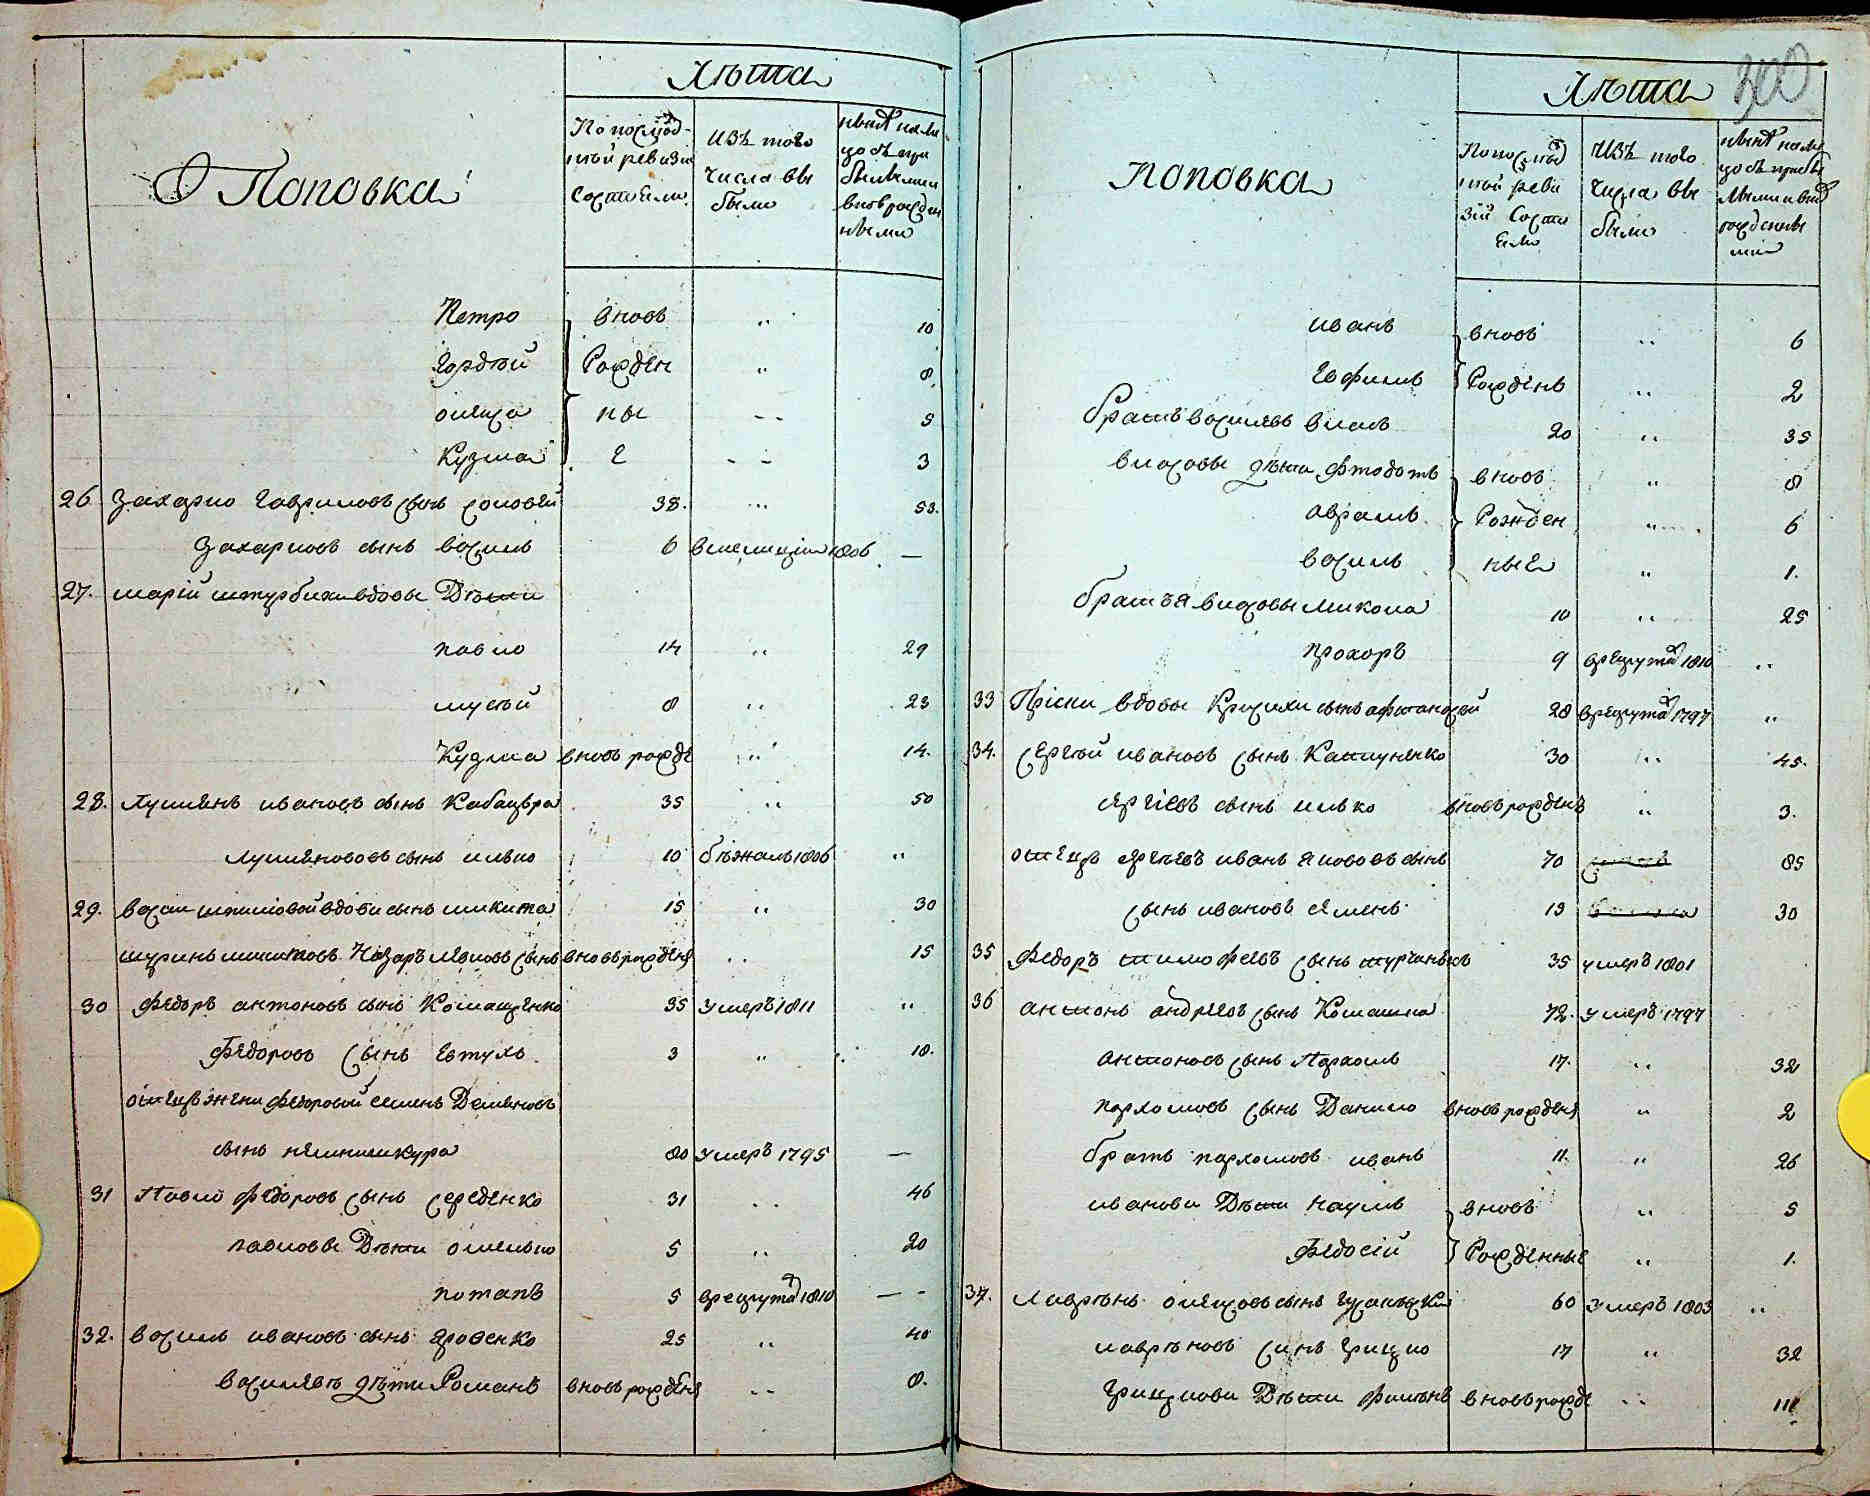 Лѣта
Поповка
По послѣд-
ней ревизіи
состояло
Изъ того
числа вы
было
нынѣ на ли
цо съ при
былыми и
вновь рожден
ными
Петро вновь " 10
Гордѣй Рожден " 8
Олекса ны " 5
Кузма е " 3
26 Захарко Гавриловъ сынъ 38. " 53.
Захарковъ сынъ Василь 6 1806 —
27. Марій вдовы Дѣти
Павло 14 " 29
Мусѣй 8 " 23
Кузма вновь рожде " 14.
28. Лукіянъ Ивановъ сынъ 35 " 50
Лукіяновъ сынъ Илько 10 бѣжалъ 1806 "
29. вдови сынъ Микита 15 " 30
шуринъ Микитовъ Назаръ сынъ вновь рожденъ " 15
30 Федоръ Антоновъ сынъ Комащенко 35 умеръ 1811 "
Федоровъ сынъ Евтухъ 3 " 18.
Отецъ жени Федоровой Семенъ Демяновъ
сынъ 80 умеръ 1795 —
31 Павло Федоровъ сынъ Середенко 31 " 46
Павловы Дѣти Омелько 5 " 20
Потапъ 5 в рекрута 1810 —
32. Василь Ивановъ сынъ Яровенко 25 " 40
Василевъ дѣти Романъ вновь рожденъ " 8.
Лѣта 300
Поповка
По послѣд
ней реви
зіи состо
яло
Изъ того
числа вы
было
нынѣ на ли
цо съ прибы
лыми и внов
рожденны
ми
Иванъ вновь " 6
Евфимъ Рожденъ " 2
братъ Василевъ Власъ 20 " 35
Власовы дѣти Федотъ вновь " 8
Аврамъ Рожден " 6
Василь ныя " 1.
братья Власовы Микола 10 " 25
Прохоръ 9 в рекрута 1810 "
33 Пріски вдовы сынъ Афанасій 28 в рекрута 1797 "
34. Сергѣй Ивановъ сынъ 30 " 45.
Сергѣевъ сынъ Илько вновь рожденъ " 3.
отецъ Сергѣевъ Иванъ Якововъ сынъ 70 85
сынъ Ивановъ Семенъ 15 30
35 Федоръ Тимофеевъ сынъ 35 умеръ 1801
36 Антонъ Андреевъ сынъ 72. умеръ 1797
Антоновъ сынъ Пархомъ 17. " 32
Пархомовъ сынъ Данило вновь рожденъ " 2
братъ Пархомовъ Иванъ 11. " 26
Иванови Дѣти Наумъ вновь " 5
Федосій Рожденные " 1.
37. Лаврѣнъ Олексовъ сынъ 60 умеръ 1803 "
Лаврѣновъ синъ Грицко 17 " 32
Грицкови Дѣти вновь рожде "